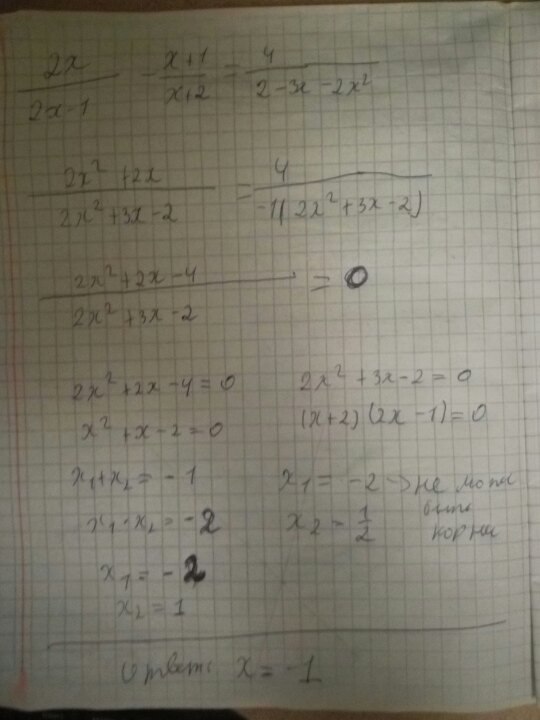 2x/(2x-1) - (x+1)/(x+2) = 4/(2-3x-2x²)
(2x²+2x)/(2x²+3x-2) = 4/(-1(2x²+3x-2))
(2x²+2x-4)/(2x²+3x-2) = 0
2x²+2x-4=0
x²+x-2=0
x₁+x₂=-1
x₁·x₂=-2
x₁=-2
x₂=1
2x²+3x-2=0
(x+2)(2x-1)=0
x₁=-2 → не может
быть
x₂=1/2
корнем
Ответ: x=-1